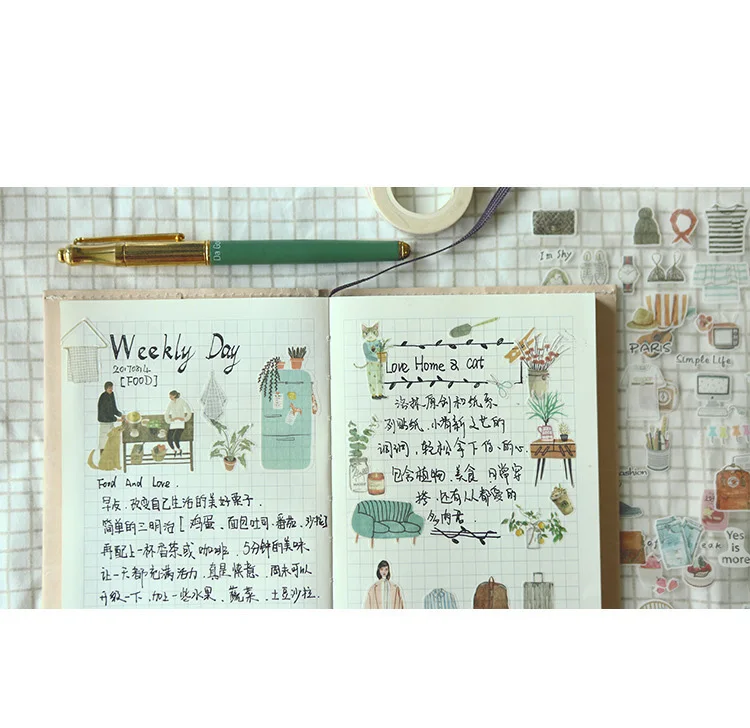 Weekly Day
20170814
[FOOD]
Food And Love.
早点.改变自己生活的美好
简单的三明治[鸡蛋.面包吐司.番茄.沙拉]
再配上一杯 或咖啡.5分钟的美味
让一天都充满活力. 周末可以
升级一下.加上一些水果.蔬菜.土豆沙拉.
Love Home & Cat
原创和纸系
列贴纸.小清新文艺的
调调,轻松拿下你的心.
包含植物.美食.日常穿
搭.还有 人都爱的
Da Go
I'm Shy
PARIS
Simple Life
fashion
Yes
is
more